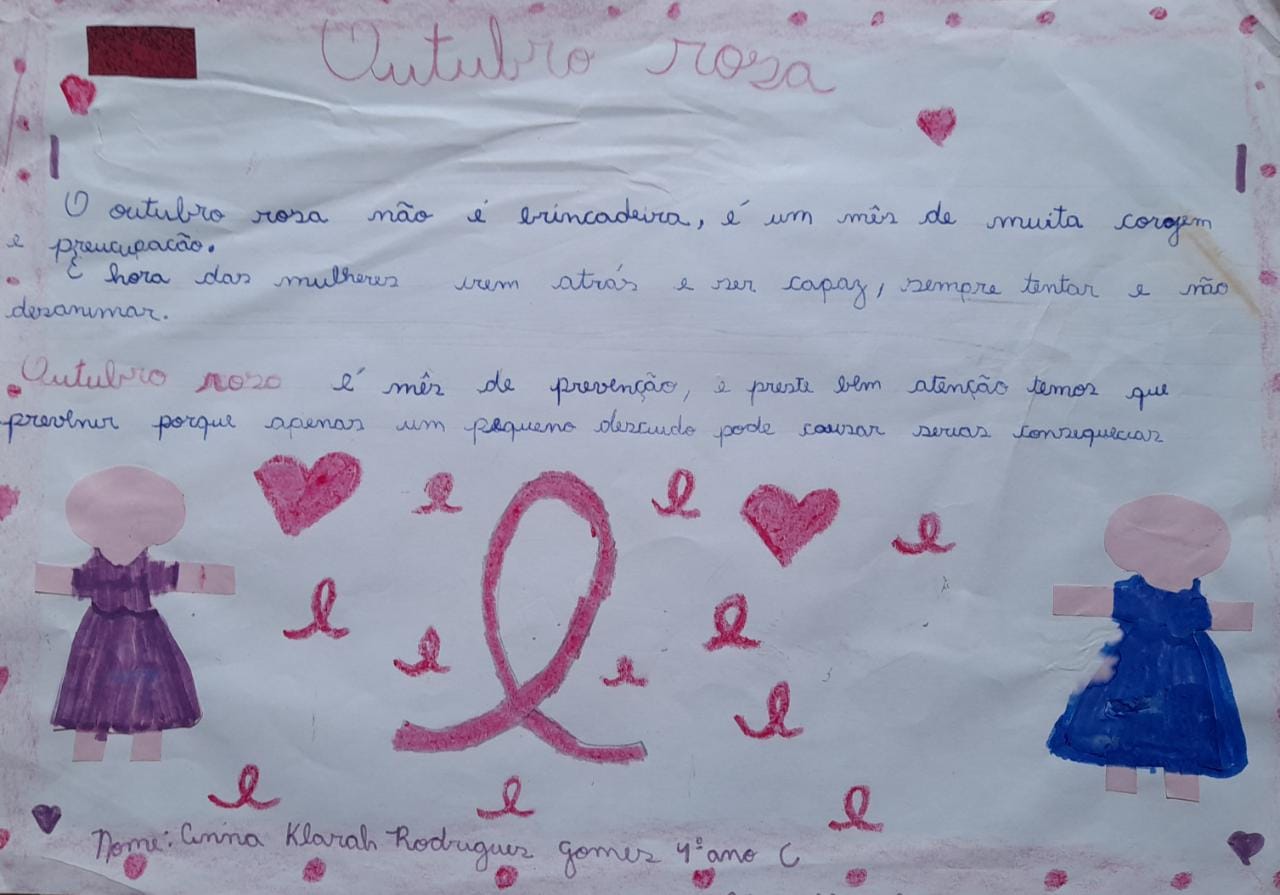 Outubro rosa
O outubro rosa não é brincadeira, é um mês de muita corajem
e preucupacão.
É hora das mulheres irem atrás e ser capaz, sempre tentar e não
desanimar.
Outubro roso é mês de prevenção, e preste bem atenção temos que
prevenir porque apenas um pequeno descuido pode causar serias consequecias
Nome: Anna Klarah Rodrigues Gomes 4º ano C